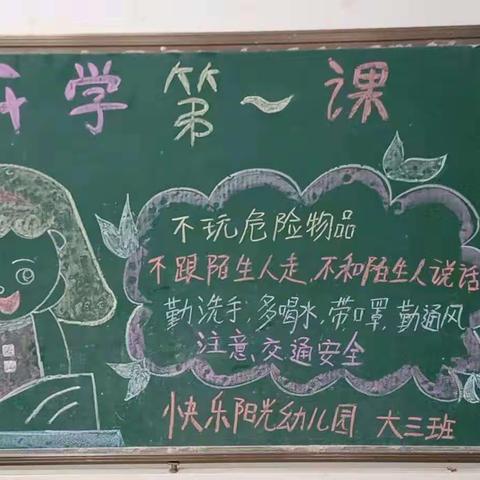 开学第一课
不玩危险物品
不跟陌生人走,不和陌生人说话
勤洗手,多喝水,带口罩,勤通风
注意、交通安全
快乐阳光幼儿园 大三班